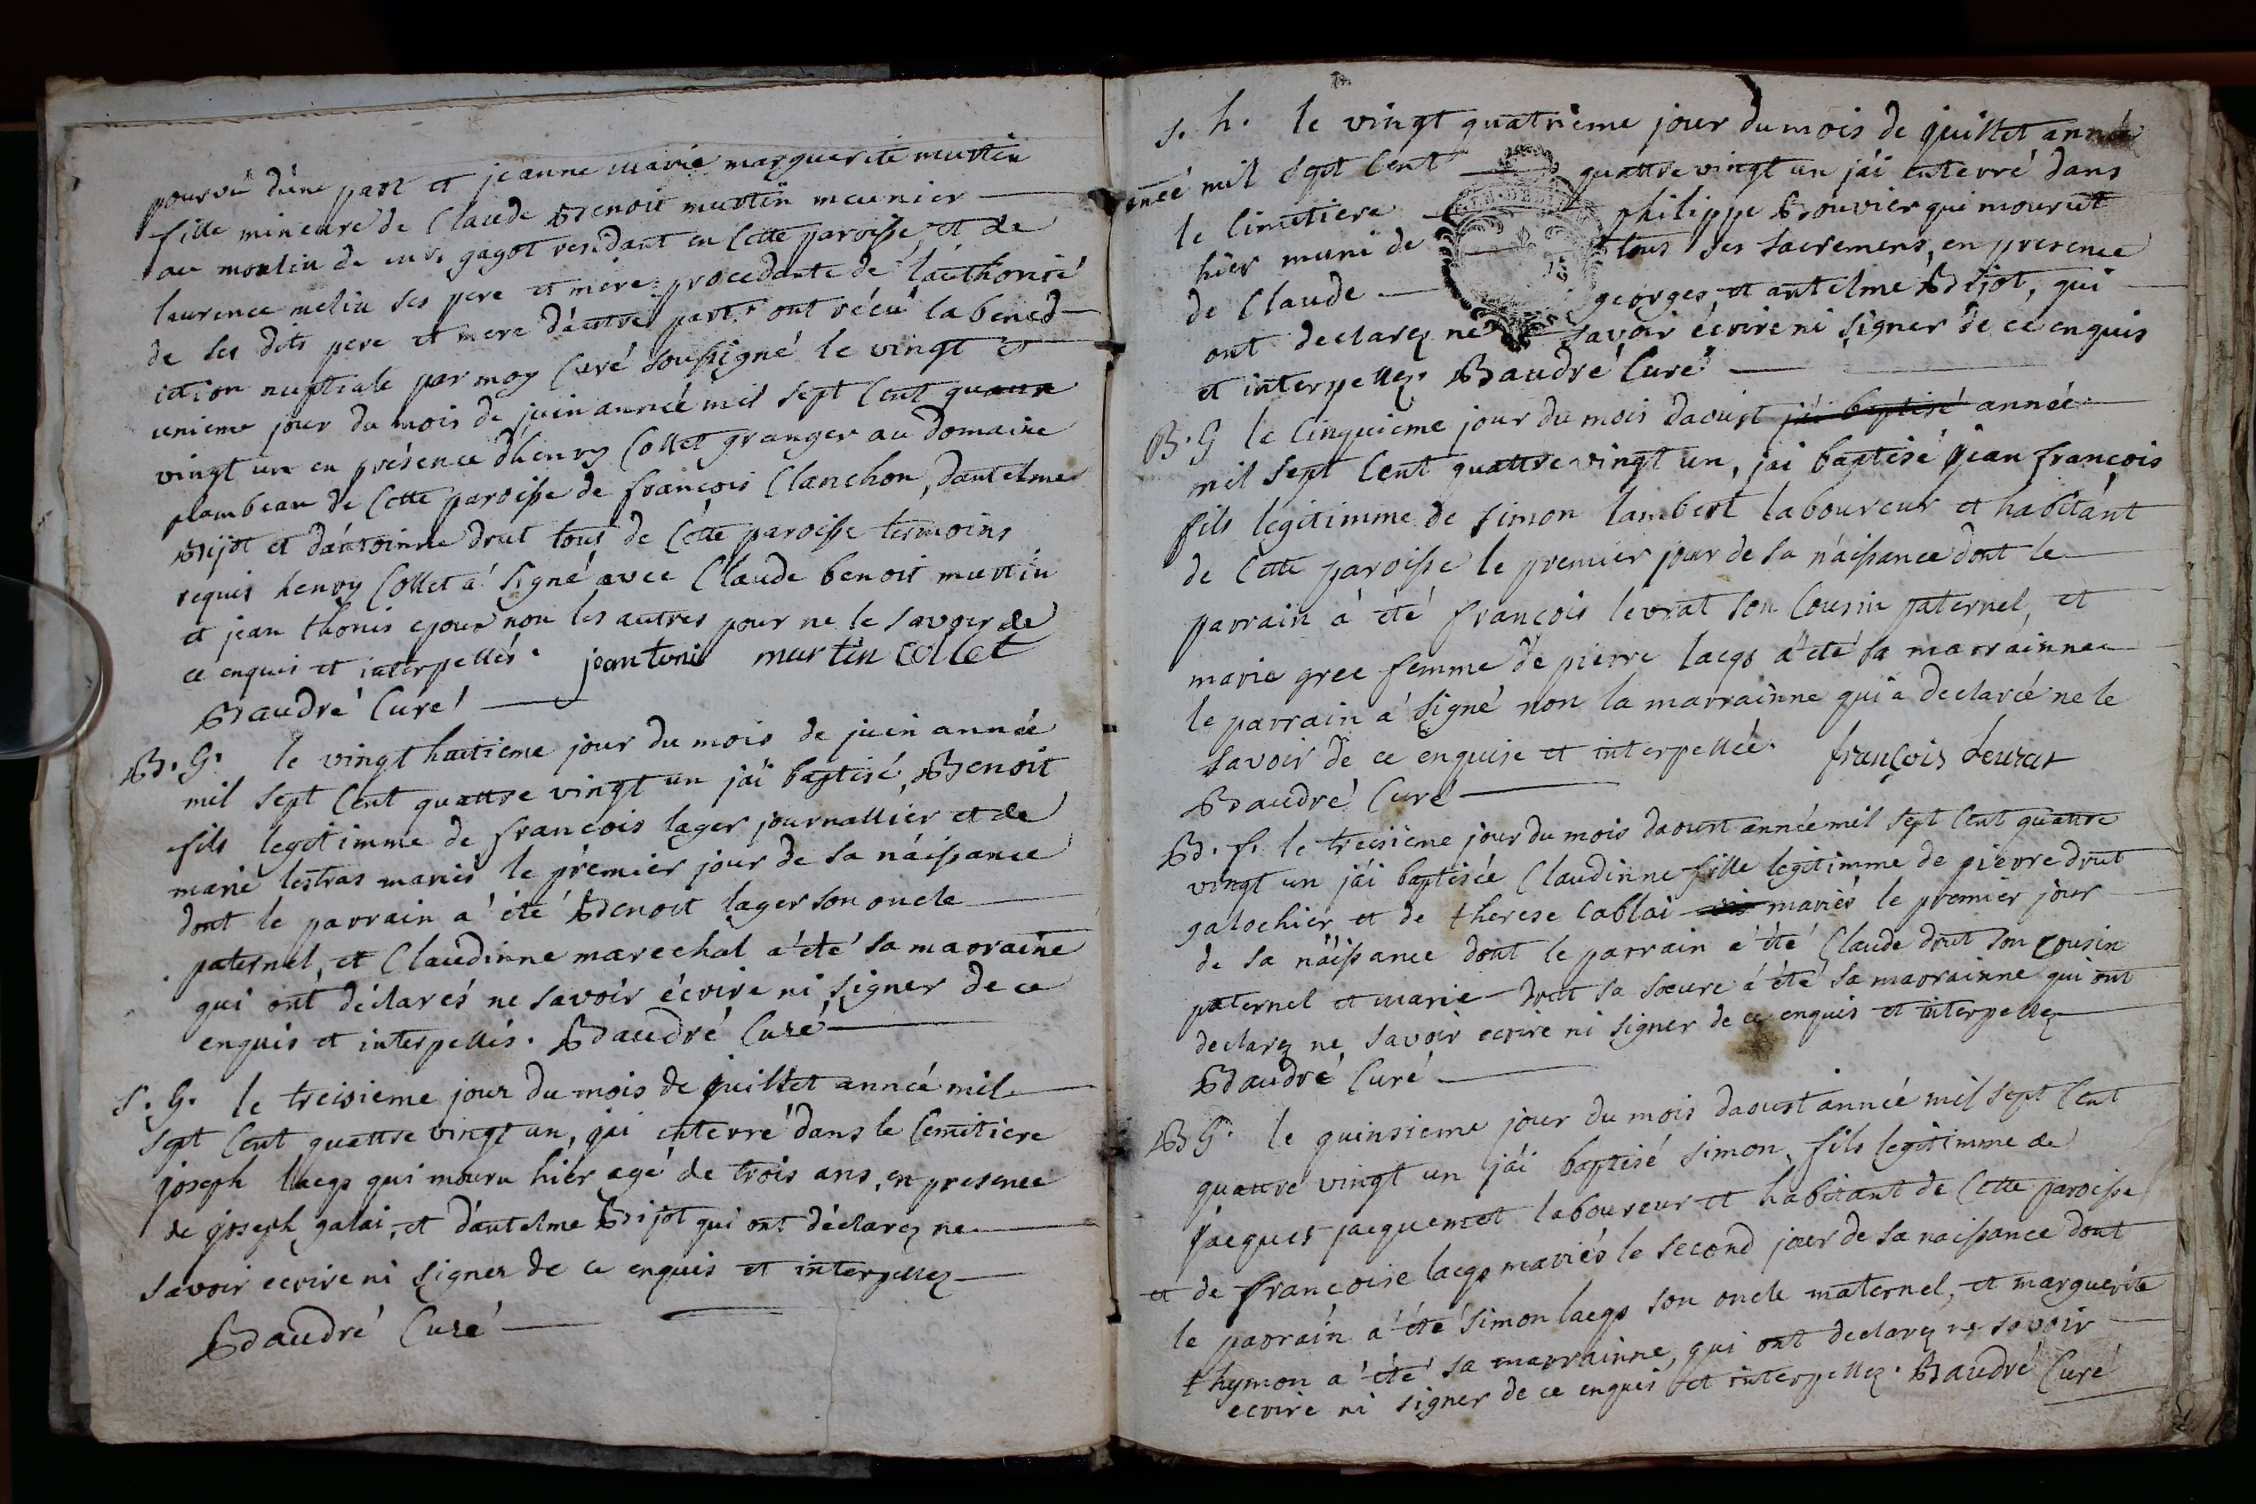 pourvü d'une part et jeanne marie marguerite murtin
fille mineure de Claude Benoit murtin meunier
au moulin de gagot residant en Cette paroisse, et de
laurence melin ses pere et mere procedante de l'authorité
de ses dits pere et mere d'autre part ont récu la bened-
iction nuptiale par moy Curé soussigné le vingt et
unieme jour du mois de juin année mil sept Cent quattre
vingt un en présence dhenry Collet granger au domaine
plambeau de Cette paroisse de françois Clanchon, dantelme
Bijot et dantoinne drut tous de Cette paroisse temoins
requis henry Collet a signé avec Claude benoit murtin
et jean thonis epoux non les autres pour ne le savoir de
ce enquis et interpellés. jean toni murtin collet
Baudré Curé
B. G. le vingt huitieme jour du mois de juin année
mil sept Cent quattre vingt un jái baptisé Benoit
fils legitimme de françois lager journallier et de
marie lestras mariés le premier jour de sa náissance
dont le parrain a été Benoit lager son oncle
paternel, et Claudinne marechal a été sa maraine
qui ont déclarés ne savoir écrire ni signer de ce
enquis et interpellés. Baudré Curé
S. G. le treisieme jour du mois de juillet année mil
sept Cent quattre vingt un, jai enterré dans le Cemitiere
joseph lacqs qui mouru hier agé de trois ans, en presence
de joseph galai, et d'antelme Bijot qui ont déclarez ne
savoir ecrire ni signer de ce enquis et interpellez
Baudré Curé
S. h. le vingt quatrieme jour du mois de juillet année
mil sept Cent quattre vingt un jái enterré dans
le Cimetiere philippe Bouvier qui mourut
hier muni de tous ses sacremens, en presence
de Claude georges, et antelme Bijot, qui
ont declarez ne savoir écrire ni signer de ce enquis
et interpellez. Baudré Curé
B. G le Cinquieme jour du mois daoust jái baptisé année
mil sept Cent quattre vingt un, jai baptisé jean françois
fils légitimme de simon lambert laboureur et habitant
de Cette paroisse le premier jour de sa náissance dont le
parrain a été françois levrat son Cousin paternel, et
marie gree femme de pierre lacqs a été sa marrainne
le parrain a signé non la marrainne qui a declarée ne le
savoir de ce enquise et interpellée. françois Leurat
Baudré Curé
B. f. le treisieme jour du mois daoust année mil sept Cent quattre
vingt un jái baptisée Claudinne fille legitimme de pierre drut
galochier et de therese Cablai mariés le premier jour
de sa náissance dont le parrain a été Claude drut son Cousin
paternel et marie drut sa soeure a été sa marrainne qui ont
declarez ne savoir ecrire ni signer de ce enquis et interpellez
Baudré Curé
B G. le quinsieme jour du mois daoust année mil sept Cent
quattre vingt un jái baptisé simon, fils legitimme de
jacques jacquemet laboureur et habitant de Cette paroisse
et de françoise lacqs mariés le second jour de sa naissance dont
le parrain a été simon lacqs son oncle maternel, et marguerite
thymon a été sa marrainne, qui ont declarez ne savoir
ecrire ni signer de ce enquis et interpellez. Baudré Curé